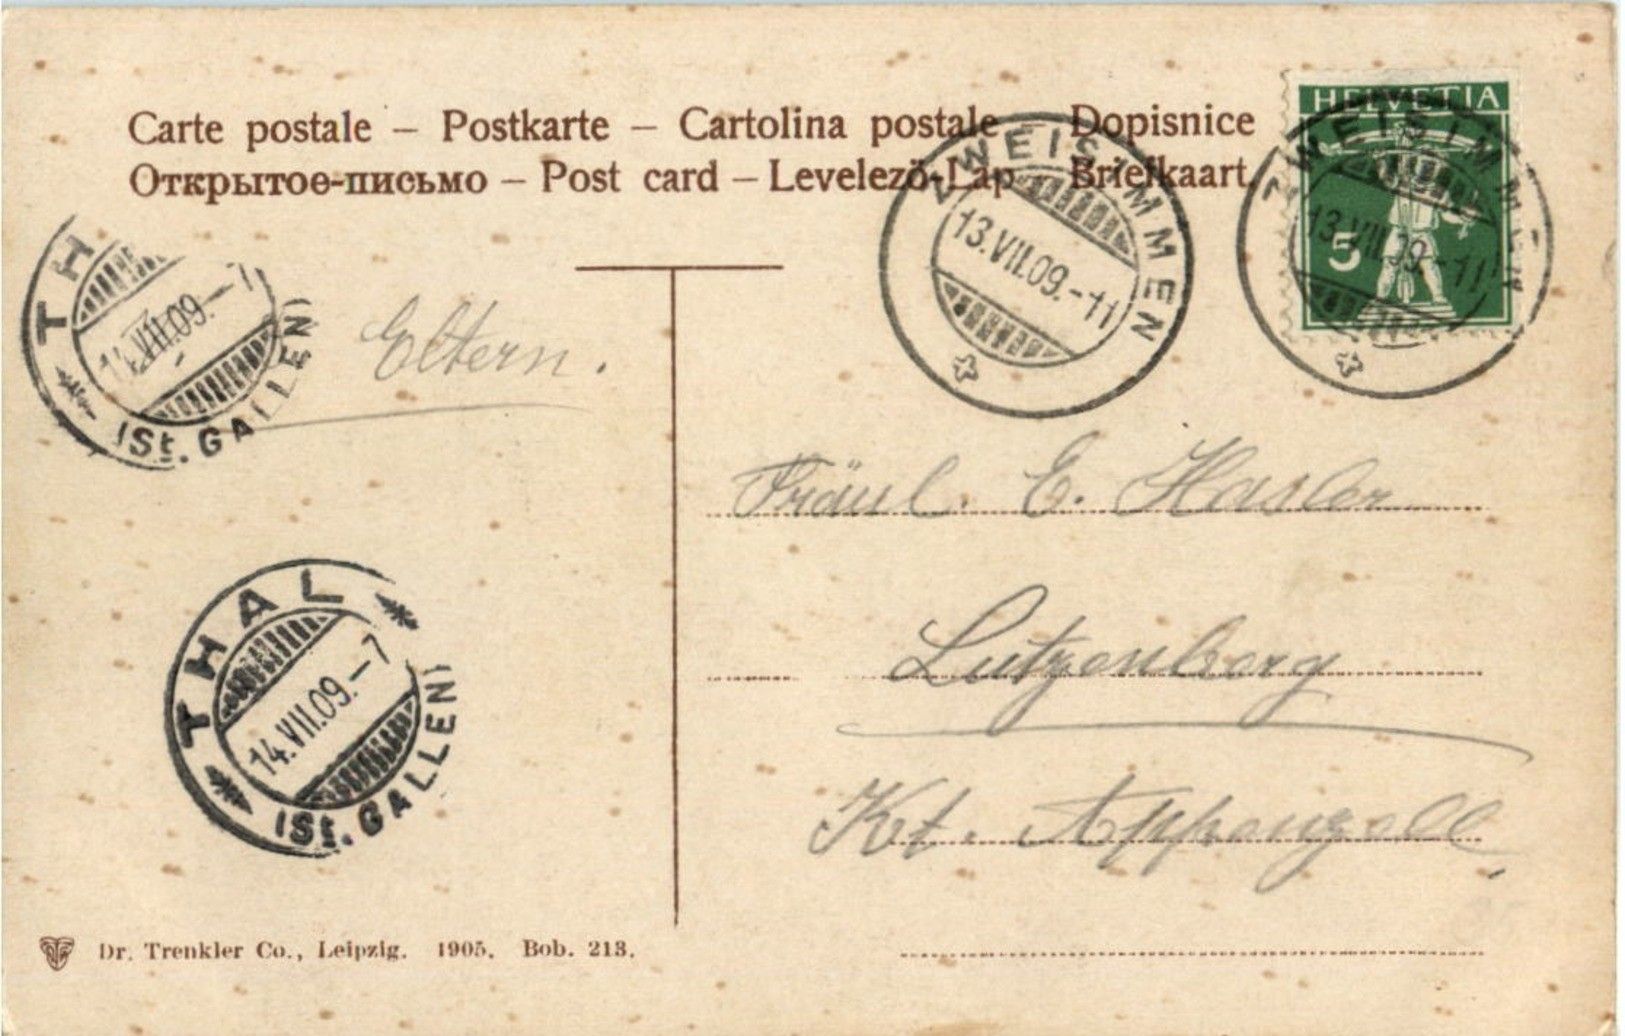 Carte postale – Postkarte – Cartolina postale – Dopisnice
Открытое-письмо – Post card – Levelező-Lap – Briefkaart.
HELVETIA
5
ZWEISIMMEN
13.VII.09.-11
ZWEISIMMEN
13.VII.09.-11
TH
14.VII.09.-7
(St. GALLEN)
Eltern.
Fräul. E. Hasler
Lutzenberg
Kt. Appenzell
THAL
14.VII.09.-7
(St. GALLEN)
Dr. Trenkler Co., Leipzig. 1905. Bob. 213.